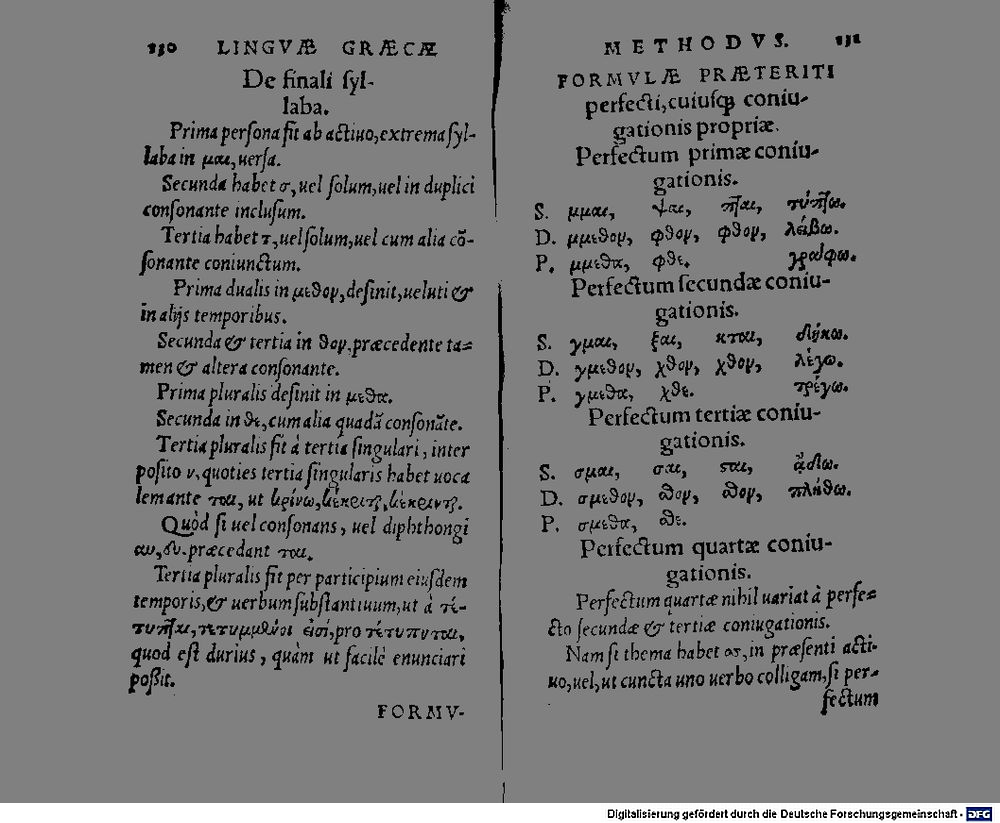 130 LINGVÆ GRÆCÆ
De finali ſyl-
laba.
Prima perſona fit ab actiuo, extrema ſyl-
laba in μαι, uerſa.
Secunda habet σ, uel ſolum, uel in duplici
conſonante incluſum.
Tertia habet τ, uel ſolum, uel cum alia cō-
ſonante coniunctum.
Prima dualis in μεθον, deſinit, ueluti &
in alijs temporibus.
Secunda & tertia in θον, præcedente ta-
men & altera conſonante.
Prima pluralis deſinit in μεθα.
Secunda in θε, cum alia quadā conſonāte.
Tertia pluralis fit à tertia ſingulari, inter
poſito ν, quoties tertia ſingularis habet uoca
lem ante ται, ut κρίνω, κέκριται, κέκρινται.
Quòd ſi uel conſonans, uel diphthongi
αυ, ευ. præcedant ται.
Tertia pluralis fit per participium eiuſdem
temporis, & uerbum ſubſtantiuum, ut à τέ-
τυπται, τετυμμένοι εἰσί, pro τέτυπνται,
quod eſt durius, quàm ut facilè enunciari
poſsit.
FORMV-
METHODVS. 131
FORMVLÆ PRÆTERITI
perfecti, cuiuſꝗ coniu-
gationis propriæ.
Perfectum primæ coniu-
gationis.
S. μμαι, ψαι, πται, τύπτω.
D. μμεθον, φθον, φθον, λείβω.
P. μμεθα, φθε. γράφω.
Perfectum ſecundæ coniu-
gationis.
S. γμαι, ξαι, κται, πλέκω.
D. γμεθον, χθον, χθον, λέγω.
P. γμεθα, χθε. τρέχω.
Perfectum tertiæ coniu-
gationis.
S. σμαι, σαι, σται, ᾄδω.
D. σμεθον, σθον, σθον, πλήθω.
P. σμεθα, σθε.
Perfectum quartæ coniu-
gationis.
Perfectum quartæ nihil uariat à perfe-
cto ſecundæ & tertiæ coniugationis.
Nam ſi thema habet σσ, in præſenti acti-
uo, uel, ut cuncta uno uerbo colligam, ſi per-
fectum
Digitalisierung gefördert durch die Deutsche Forschungsgemeinschaft - DFG